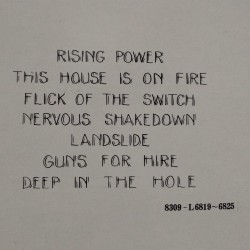 RISING POWER
THIS HOUSE IS ON FIRE
FLICK OF THE SWITCH
NERVOUS SHAKEDOWN
LANDSLIDE
GUNS FOR HIRE
DEEP IN THE HOLE
8309-L6819~6825